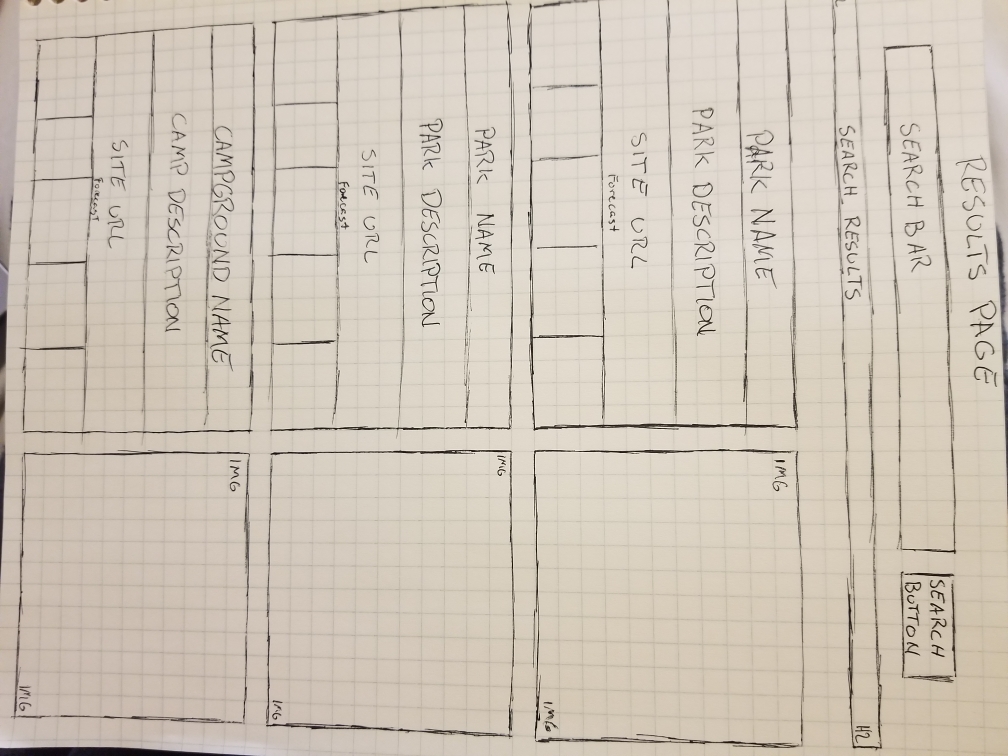 RESULTS PAGE
SEARCH BAR
SEARCH
BUTTON
SEARCH RESULTS
H2
PARK NAME
PARK DESCRIPTION
SITE URL
Forecast
IMG
IMG
PARK NAME
PARK DESCRIPTION
SITE URL
Forcast
IMG
IMG
CAMPGROUND NAME
CAMP DESCRIPTION
SITE URL
Forecast
IMG
IMG